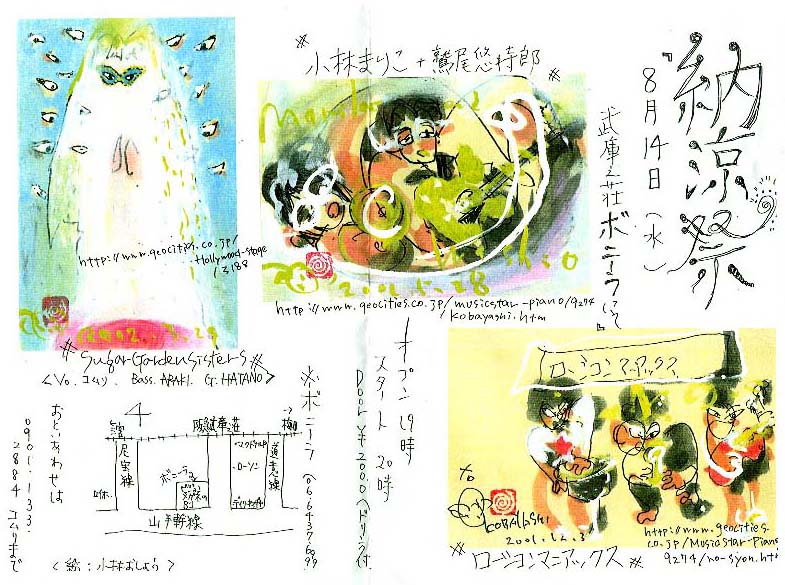 納涼祭
8月14日(水)
武庫之荘ボニーラにて
※小林まりこ+鷲尾悠持郎※
2002.5.28
http://www.geocities.co.jp/musicstar-piano/9274
kobayashi.htm
http://www.geocities.co.jp/
Hollywood-stage
/3188
2002.5.29
※SugarGardenSisters※
<Vo.コムリ. Bass.ARAKI. G.HATANO>
オープン19時
スタート20時
Door ¥2000(ドリンク付
※ボニーラ 0664376099
ロージコンマニアックス
to
KOBAYASHI
2001.12.3
http://www.geocities.
co.jp/Musicstar-Piano
9274/no-syon.ht
※ロージコンマニアックス※
4
阪急武庫之荘
→梅
尼宝線
ボニーラ
マクドナルド
ローソン
デイリー
道意線
山手幹線
おといあわせは
0901.133.
2884コムリまで
<絵:小林おしょう>